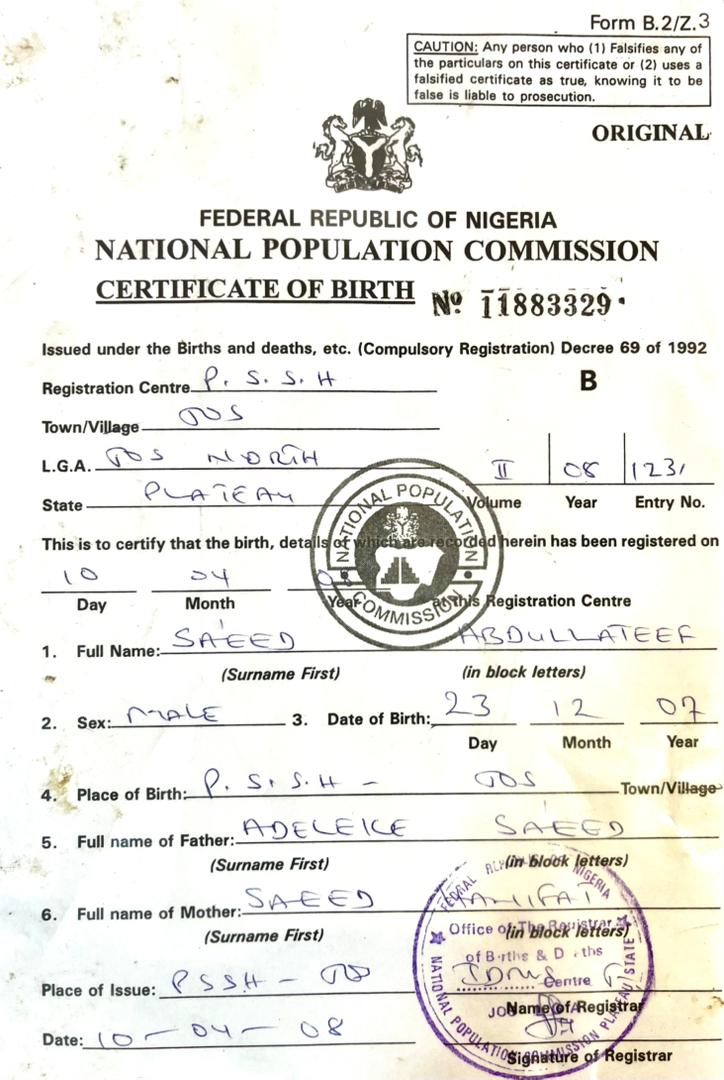 Form B.2/Z.3
CAUTION: Any person who (1) Falsifies any of
the particulars on this certificate or (2) uses a
falsified certificate as true, knowing it to be
false is liable to prosecution.
ORIGINAL
FEDERAL REPUBLIC OF NIGERIA
NATIONAL POPULATION COMMISSION
CERTIFICATE OF BIRTH Nº 11883329
Issued under the Births and deaths, etc. (Compulsory Registration) Decree 69 of 1992
Registration Centre P. S. S. H B
Town/Village JOS
L.G.A. JOS NORTH II 08 1231
State PLATEAU Volume Year Entry No.
NATIONAL POPULATION COMMISSION
This is to certify that the birth, details of which are recorded herein has been registered on
10 04
Day Month Year at this Registration Centre
1. Full Name: SA'EED ABDULLATEEF
(Surname First) (in block letters)
2. Sex: MALE 3. Date of Birth: 23 12 07
Day Month Year
4. Place of Birth: P. S. S. H - JOS Town/Village
5. Full name of Father: ADELEKE SAEED
(Surname First) (in block letters)
6. Full name of Mother: SAEED
(Surname First) (in block letters)
FEDERAL REPUBLIC OF NIGERIA
Office of The Registrar
of Births & Deaths
Centre
JOS
NATIONAL POPULATION COMMISSION PLATEAU STATE
Place of Issue: PSSH - JOS
Name of Registrar
Date: 10 - 04 - 08
Signature of Registrar